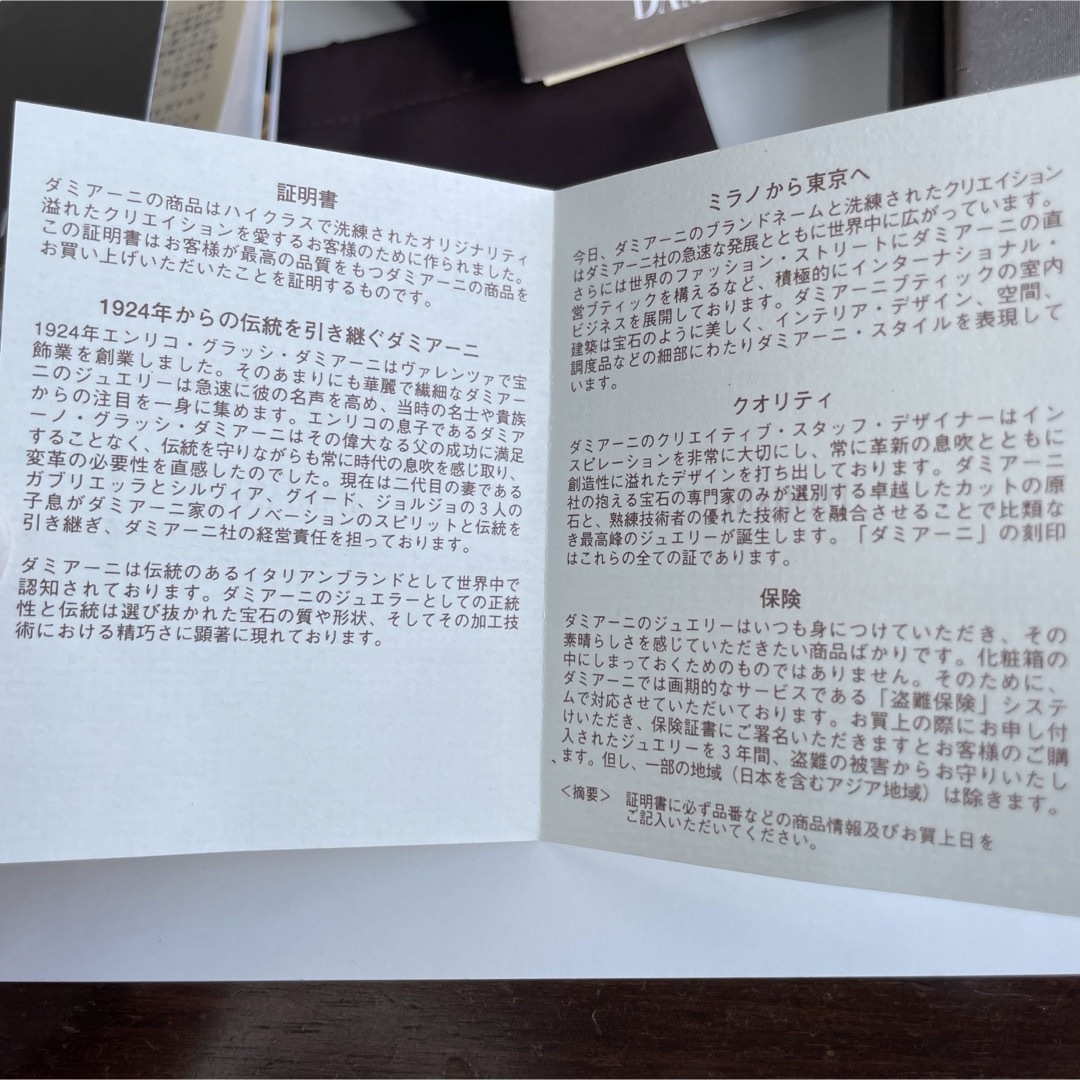 DA
証明書
ダミアーニの商品はハイクラスで洗練されたオリジナリティ
溢れたクリエイションを愛するお客様のために作られました。
この証明書はお客様が最高の品質をもつダミアーニの商品を
お買い上げいただいたことを証明するものです。
1924年からの伝統を引き継ぐダミアーニ
1924年エンリコ・グラッシ・ダミアーニはヴァレンツァで宝
飾業を創業しました。そのあまりにも華麗で繊細なダミアー
ニのジュエリーは急速に彼の名声を高め、当時の名士や貴族
からの注目を一身に集めます。エンリコの息子であるダミア
ーノ・グラッシ・ダミアーニはその偉大なる父の成功に満足
することなく、伝統を守りながらも常に時代の息吹を感じ取り、
変革の必要性を直感したのでした。現在は二代目の妻である
ガブリエッラとシルヴィア、グイード、ジョルジョの3人の
子息がダミアーニ家のイノベーションのスピリットと伝統を
引き継ぎ、ダミアーニ社の経営責任を担っております。
ダミアーニは伝統のあるイタリアンブランドとして世界中で
認知されております。ダミアーニのジュエラーとしての正統
性と伝統は選び抜かれた宝石の質や形状、そしてその加工技
術における精巧さに顕著に現れております。
ミラノから東京へ
今日、ダミアーニのブランドネームと洗練されたクリエイション
はダミアーニ社の急速な発展とともに世界中に広がっています。
さらには世界のファッション・ストリートにダミアーニの直
営ブティックを構えるなど、積極的にインターナショナル・
ビジネスを展開しております。ダミアーニブティックの室内
建築は宝石のように美しく、インテリア・デザイン、空間、
調度品などの細部にわたりダミアーニ・スタイルを表現して
います。
クオリティ
ダミアーニのクリエイティブ・スタッフ・デザイナーはイン
スピレーションを非常に大切にし、常に革新の息吹とともに
創造性に溢れたデザインを打ち出しております。ダミアーニ
社の抱える宝石の専門家のみが選別する卓越したカットの原
石と、熟練技術者の優れた技術とを融合させることで比類な
き最高峰のジュエリーが誕生します。「ダミアーニ」の刻印
はこれらの全ての証であります。
保険
ダミアーニのジュエリーはいつも身につけていただき、その
素晴らしさを感じていただきたい商品ばかりです。化粧箱の
中にしまっておくためのものではありません。そのために、
ダミアーニでは画期的なサービスである「盗難保険」システ
ムで対応させていただいております。お買上の際にお申し付
けいただき、保険証書にご署名いただきますとお客様のご購
入されたジュエリーを3年間、盗難の被害からお守りいたし
ます。但し、一部の地域（日本を含むアジア地域）は除きます。
＜摘要＞ 証明書に必ず品番などの商品情報及びお買上日を
ご記入いただいてください。